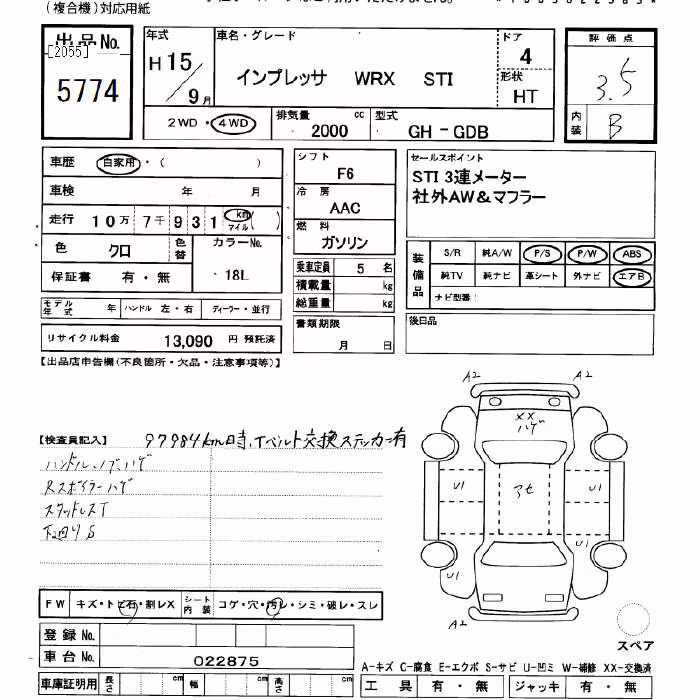 (複合機)対応用紙
出品No.
[2055]
5774
年式
H15/9月
車名・グレード
インプレッサ WRX STI
ドア
4
形状
HT
評価点
3.5
内装
B
2WD・4WD
排気量
2000 cc
型式
GH-GDB
車歴 自家用・( )
車検 年 月
走行 10万7千931 km マイル( )
色 クロ
色替
カラーNo.
18L
保証書 有・無
モデル年式 年
ハンドル 左・右
ディーラー・並行
リサイクル料金 13,090 円 預託済
シフト
F6
冷房
AAC
燃料
ガソリン
乗車定員 5 名
積載量 kg
総重量 kg
書類期限
月 日
セールスポイント
STI 3連メーター
社外AW&マフラー
装備品
S/R 純A/W P/S P/W ABS
純TV 純ナビ 革シート 外ナビ エアB
ナビ型番:
後日品
【出品店申告欄(不良箇所・欠品・注意事項等)】
【検査員記入】 97984km時、Tベルト交換ステッカー有
ハンドル、ノブハゲ
Rスポイラーハゲ
スタッドレスT
下廻りS
A2 A2
XX
ハゲ
U1 アセ U1
U1
A2
スペア
FW キズ・トビ石・割レX
シート内装 コゲ・穴・汚レ・シミ・破レ・スレ
登録No.
車台No. 022875
車庫証明用 長さ cm 幅 cm 高さ cm
A-キズ C-腐食 E-エクボ S-サビ U-凹ミ W-補修 XX-交換済
工具 有・無 ジャッキ 有・無